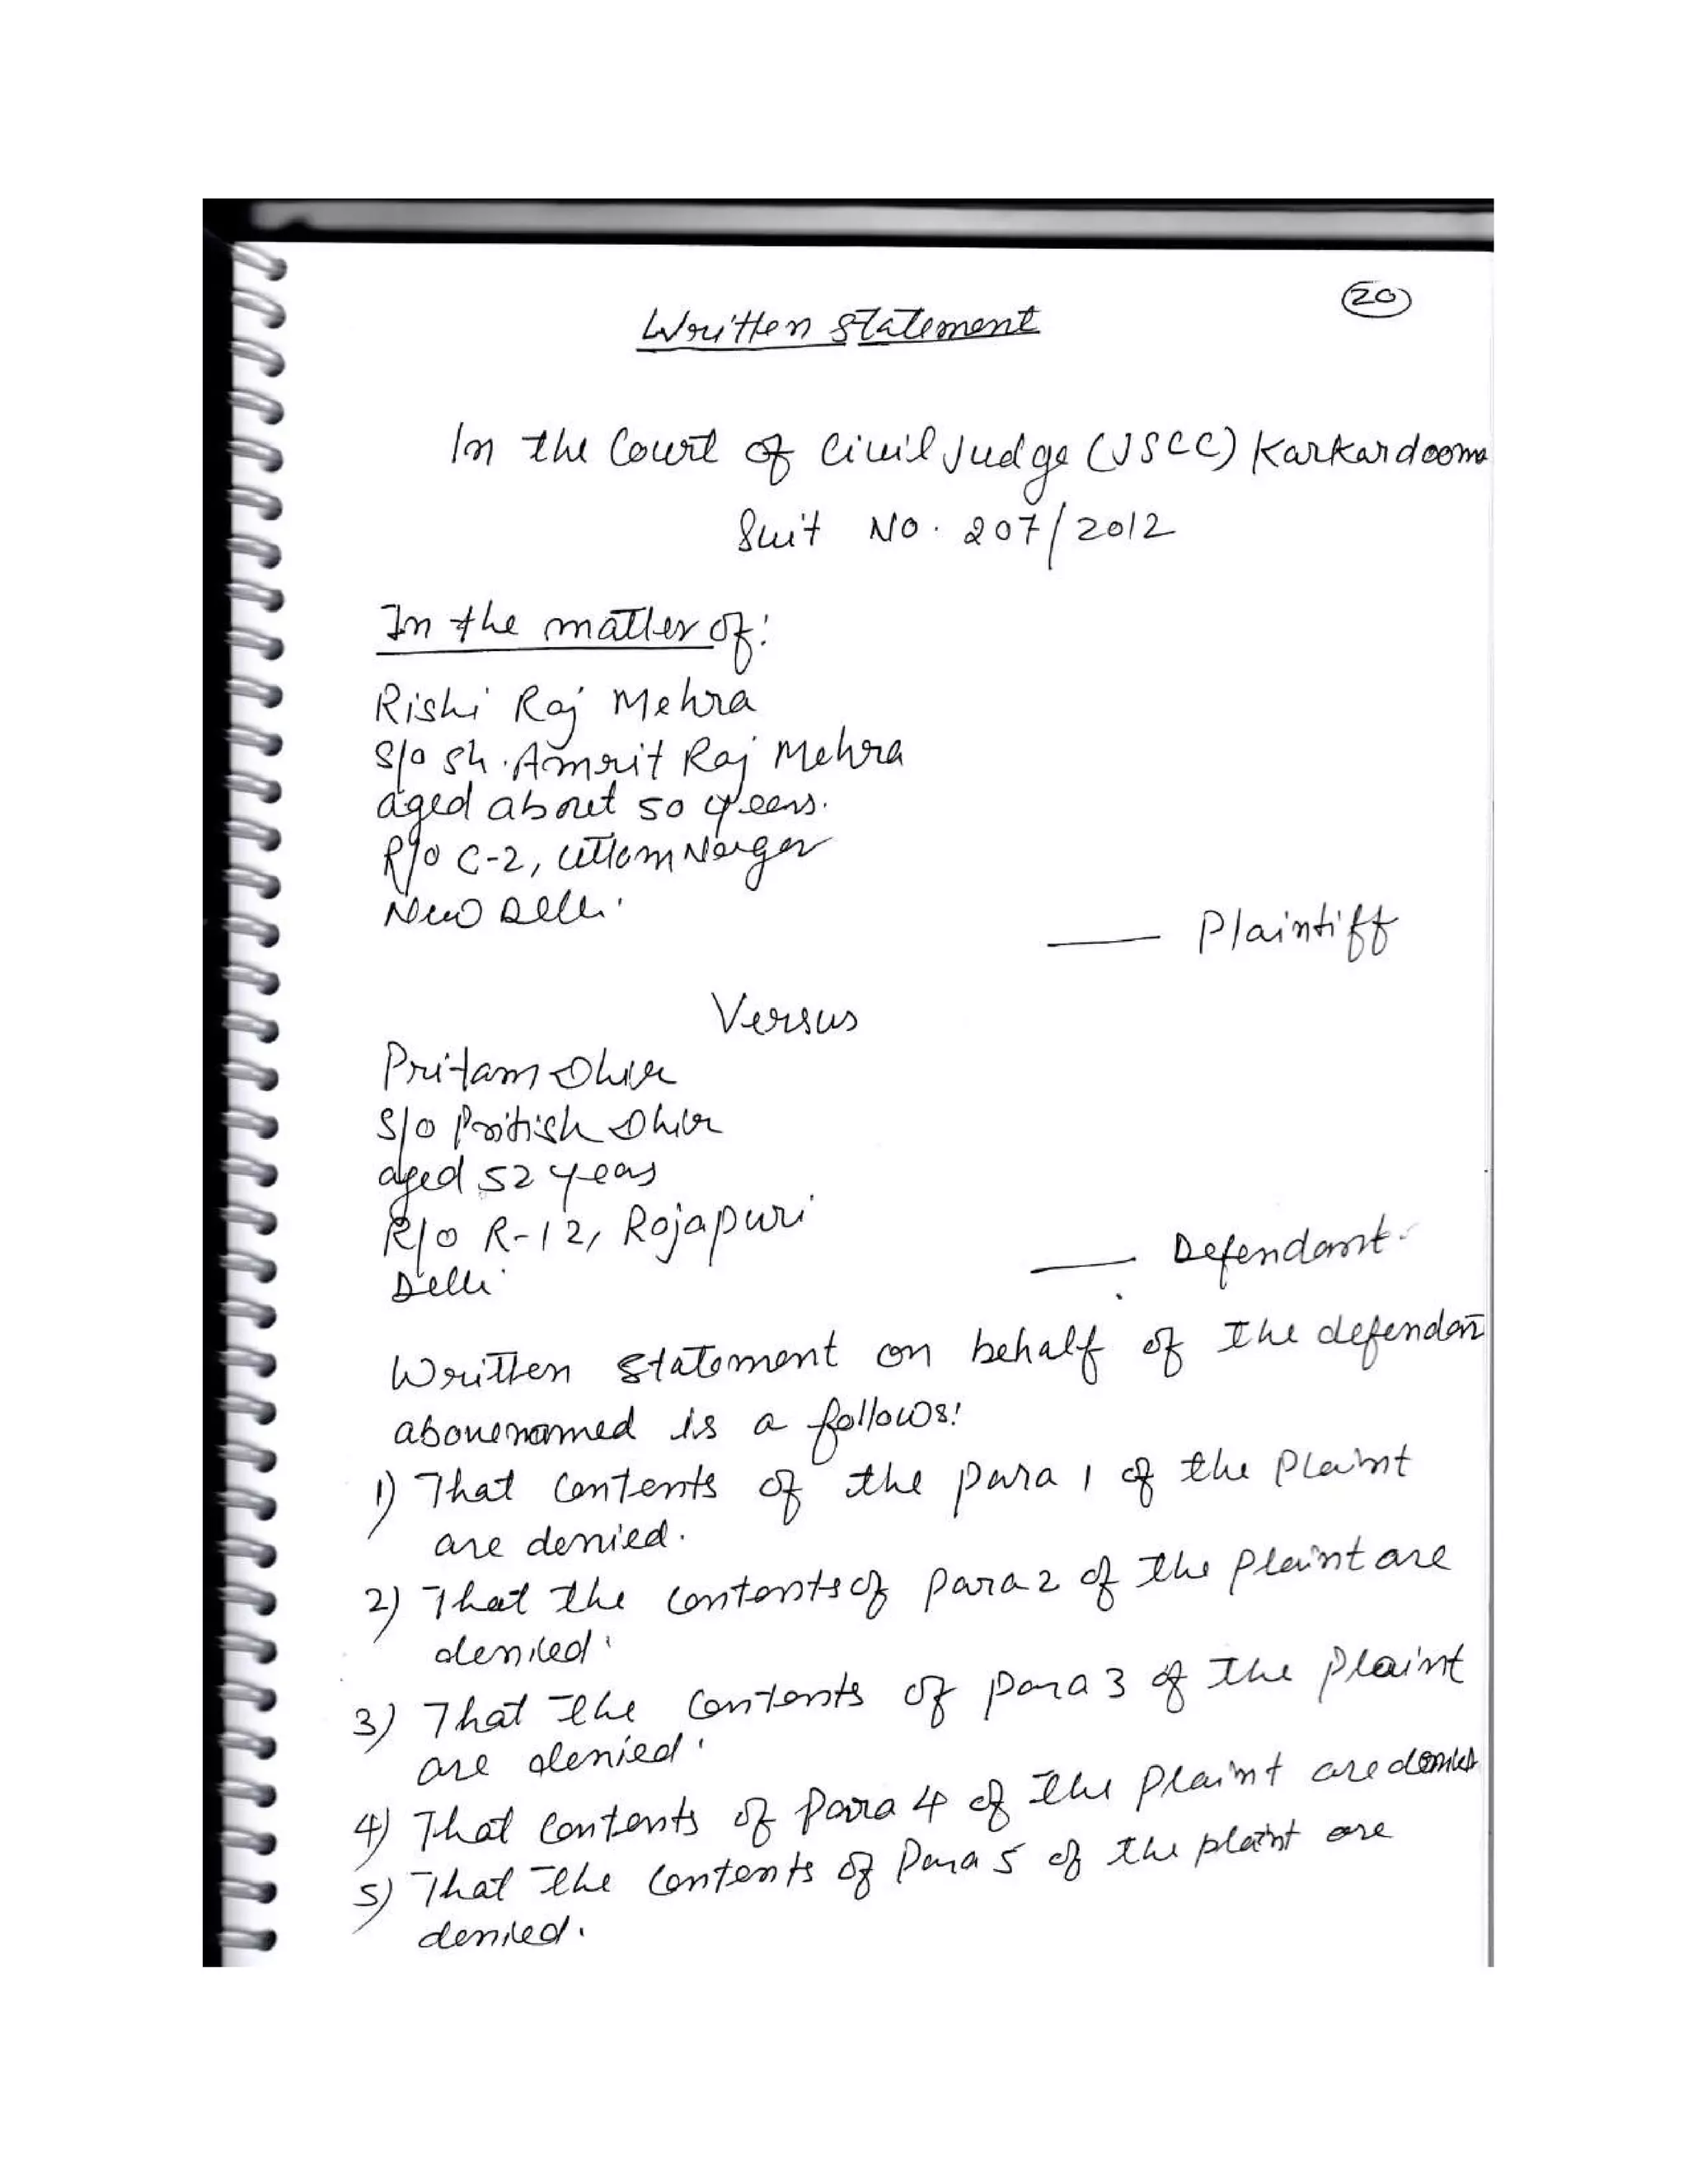 20
Written Statement
In the Court of Civil Judge (JSCC) Karkardooma
Suit No. 207/2012
In the matter of:
Rishi Raj Mehra
S/o Sh. Amrit Raj Mehra
aged about 50 years.
R/o C-2, Uttam Nagar
New Delhi.
— Plaintiff
Versus
Pritam Dhir
S/o Pritish Dhir
aged 52 years
R/o R-12, Rajapuri
Delhi.
— Defendant.
Written Statement on behalf of the defendant
abovenamed is a follows:
1) That Contents of the para 1 of the Plaint
are denied.
2) That the contents of para 2 of the plaint are
denied.
3) That the Contents of para 3 of the plaint
are denied.
4) That Contents of Para 4 of the Plaint are denied
5) That the Contents of Para 5 of the plaint are
denied.